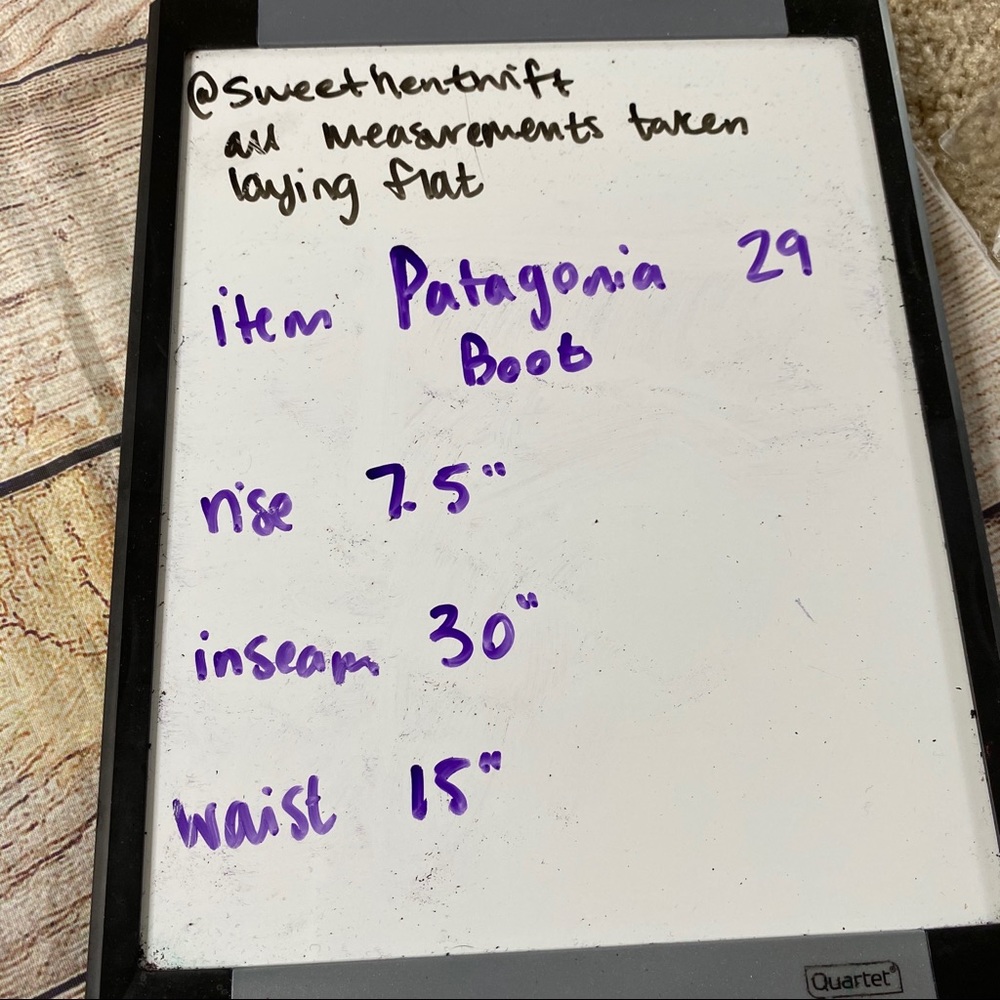 @sweethenthrift
all measurements taken
laying flat
item Patagonia 29
Boot
rise 7.5"
inseam 30"
waist 15"
Quartet®